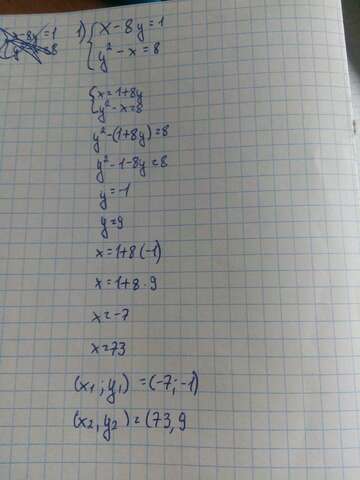 x-8y=1
y²
8
1) { x-8y=1
y²-x=8
{ x=1+8y
y²-x=8
y²-(1+8y)=8
y²-1-8y=8
y=-1
y=9
x=1+8(-1)
x=1+8·9
x=-7
x=73
(x₁;y₁)=(-7;-1)
(x₂,y₂)=(73,9